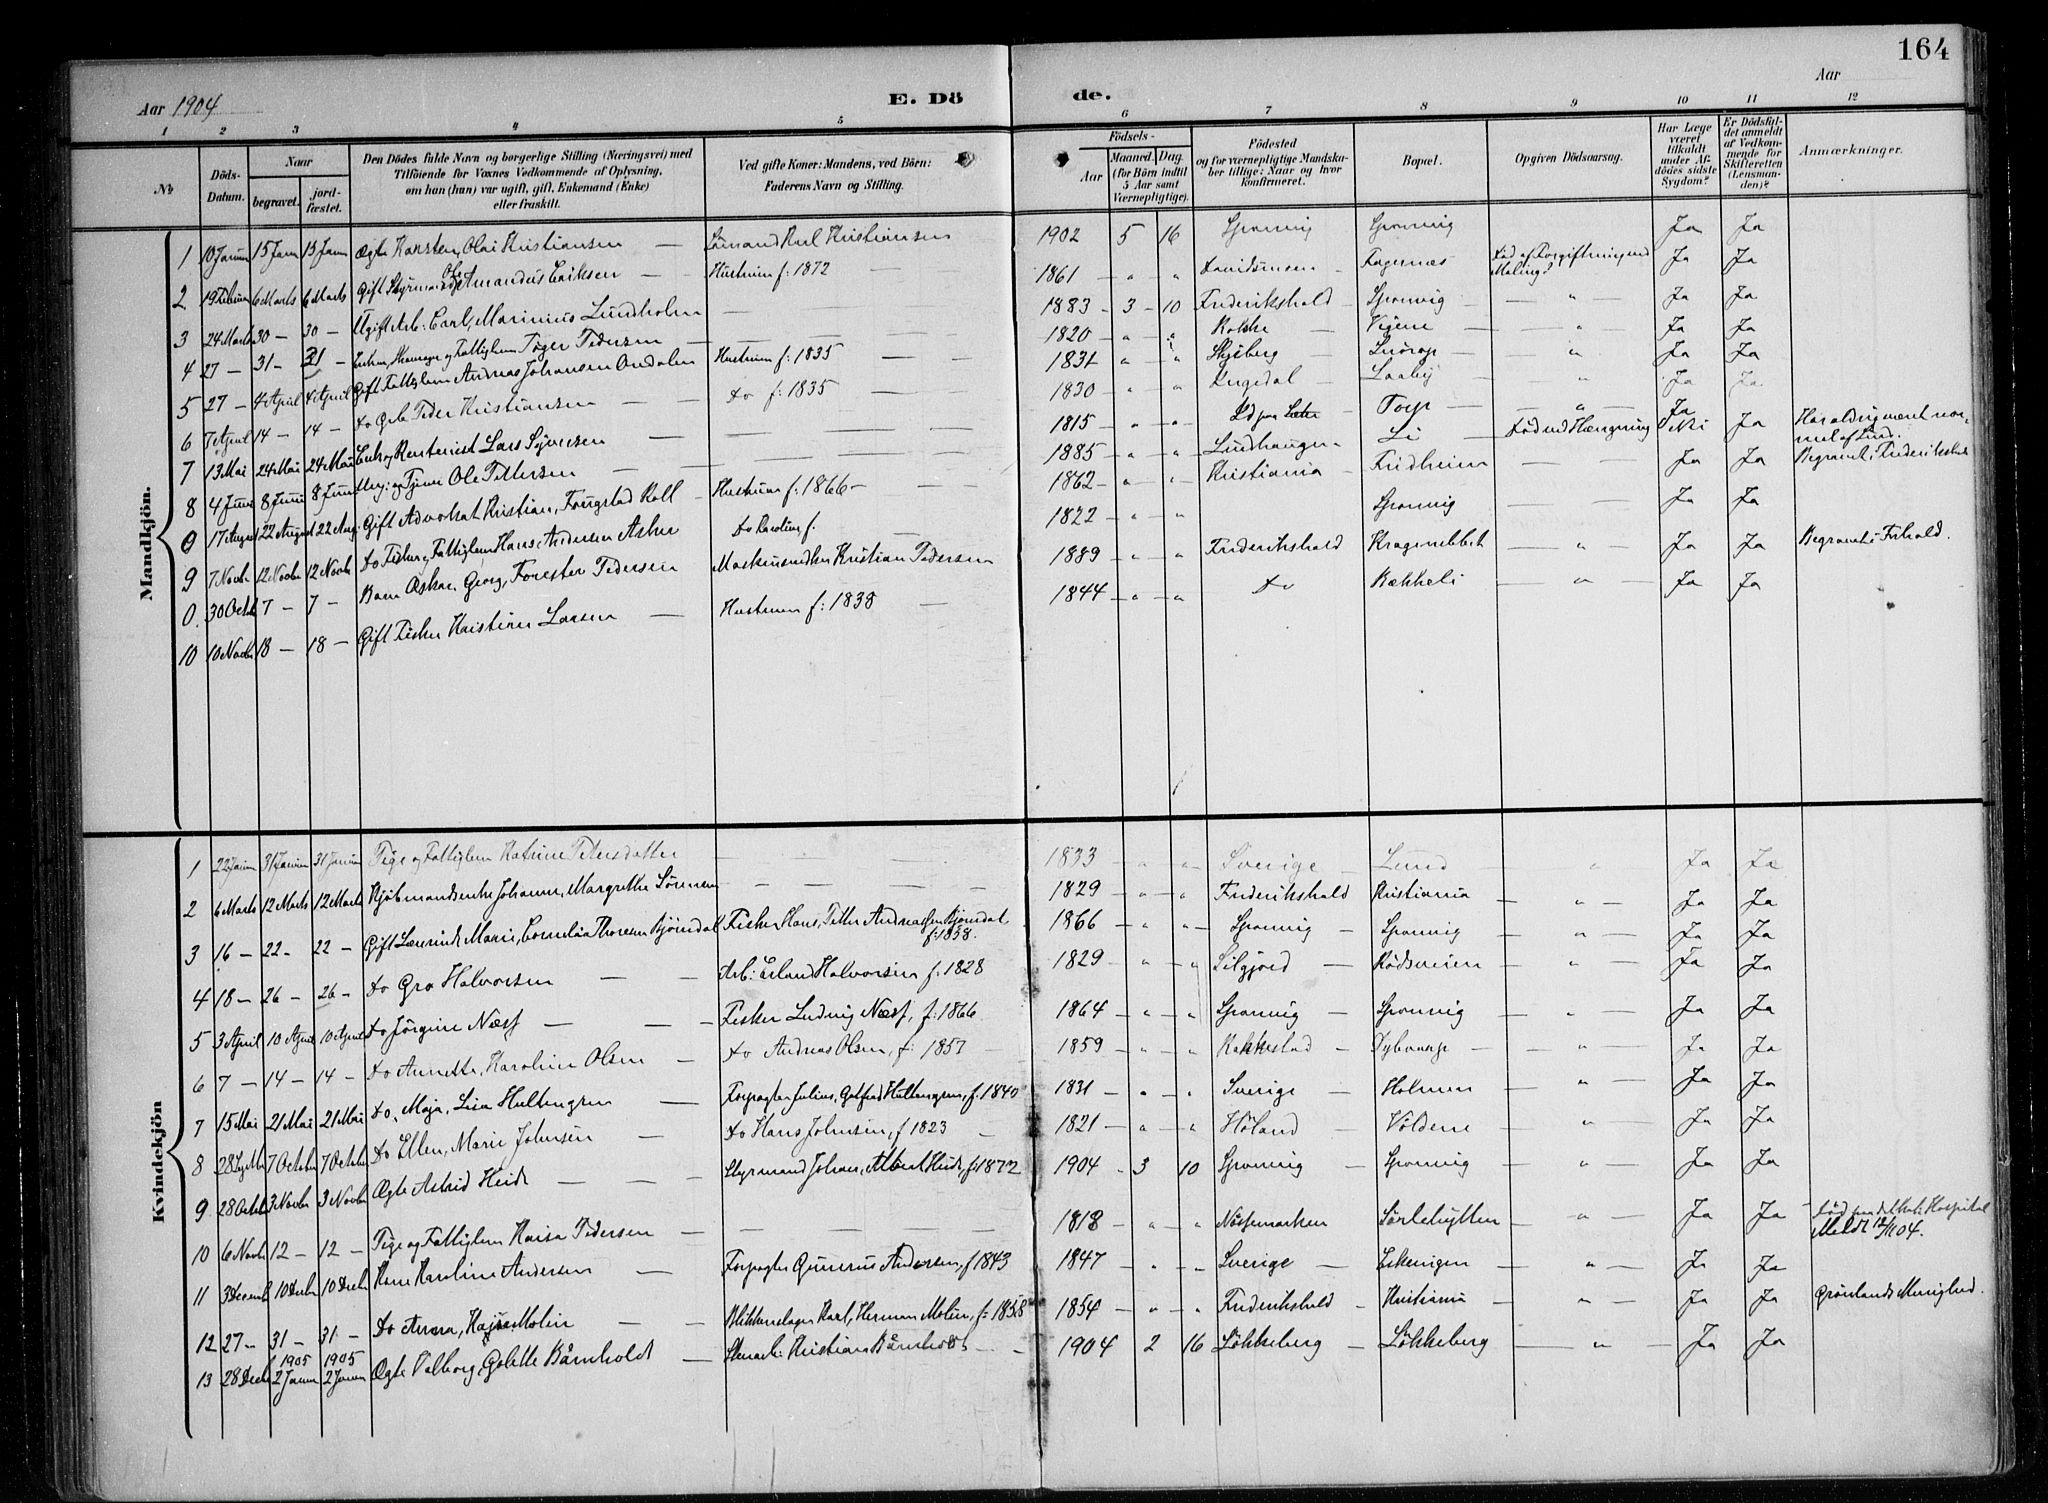 164
Aar 1904
E. Döde.
Aar
1 2 3 4 5 6 7 8 9 10 11 12
№
Döds-Datum.
Naar
begravet.
jord-fæstet.
Den Dödes fulde Navn og borgerlige Stilling (Næringsvei) med
Tilföiende for Voxnes Vedkommende af Oplysning,
om han (hun) var ugift, gift, Enkemand (Enke)
eller fraskilt.
Ved gifte Koner: Mandens, ved Börn:
Faderens Navn og Stilling.
Födsels-
Aar
Maaned. Dag.
(for Börn indtil
5 Aar samt
Værnepligtige).
Födested
og for værnepligtige Mandska-
ber tillige: Naar og hvor
konfirmeret.
Bopæl.
Opgiven Dödsaarsag.
Har Læge
været
tilkaldt
under Af-
dödes sidste
Sygdom?
Er Dödsfal-
det anmeldt
af Vedkom-
mende for
Skifteretten
(Lensman-
den)?
Anmærkninger.
Mandkjön.
1 10 Januar 15 Janu 15 Janu Ægte Karsten, Olai Kristiansen — Sömand Karl Kristiansen 1902 5 16 Sponvig Sponvig Ja Ja
2 19 Februar 6 Marts 6 Marts Gift Styrmand Ole Amandus Eriksen — Hustruen f: 1872 — 1861 - " " Fagernæs Död af Forgiftning ved Maling? Ja Ja
3 24 Marts 30 — 30 — Ugift Arb: Carl, Marinius Lundholm — 1883 - 3 - 10 Frederikshald - Sponvig — " — Ja Ja
4 27 — 31 — 31 — Enkem. og Fattiglem Töger Pedersen — 1820 " " Rokke — Veiene — " Ja Ja
5 27 — 4 April 4 April Gift Fattiglem Andreas Johansen Hustruen f: 1835 — 1831 " " Skjeberg — " Ja Ja
6 7 April 14 — 14 — do Peder Kristiansen — do f: 1835 — 1830 - " " — Laaby — " Ja Ja
7 13 Mai 24 Mai 24 Mai Enkem. Rentenist Lars Syversen — 1815 " " — Torp — " — Ja
8 4 Juni 8 Juni 8 Juni Ung: og Tjener Ole Pettersen — 1885 " " Lindhaugen — Li — Död ved Hængning Nei Ja
0 17 August 22 August 22 Aug. Gift Advokat Kristian, Fougstad Roll Hustruen f: 1866 — 1862 - " " Kristiania — Fridheim — Ja Ja Begravet i Frederikshald
9 7 Novbr 12 Novbr 12 Novbr do Fisker og Fattiglem Hans, Andersen Asker do Karoline f. 1822 - " " Sponvig — Ja Ja
0. 30 Octbr 7 — 7 — Barn Oskar, Georg, Forester Pedersen Maskinsmelker Kristian Pedersen 1889 - " " Frederikshald Kragenebbet — " — Ja Ja Begravet i Frhald.
10 10 Novbr 18 — 18 — Gift Fisker Kristian Larsen — Hustruen f: 1838 — 1844 - " - " do Bækkeli — " — Ja Ja
Kvindekjön
1 22 Januar 31 Januar 31 Januar Pige og Fattiglem Katrine Petersdatter — 1833 — " " Sverige — Lund — " Ja Ja
2 6 Marts 12 Marts 12 Marts Kjöbmandsenke Johanne, Margrethe Sörensen — 1829 - " - " Frederikshald Kristiania — " — Ja Ja
3 16 — 22 - 22 — Gift Marie, Cornelia Thoresen Björndal Fisker Hans, Petter Andreassen Björndal f: 1838. 1866 - " " Sponvig — Sponvig — " — Ja Ja
4 18 — 26 — 26 — do Gro Halvorsen — Arb: Erland Halvorsen f: 1828 1829 — " " Siljord — Rödsveien — " — Ja Ja
5 3 April 10 April 10 April do Jörgine Næss — Fisker Ludvig Næss, f: 1866 1864 - " " Sponvig — Sponvig — " — Ja Ja
6 7 — 14 — 14 — do Annette, Karoline Olsen — do Andreas Olsen, f: 1857 1859 — " " Rakkestad — — " — Ja Ja
7 15 Mai 21 Mai 21 Mai do, Maja, Lisa Hultengren — Forpagter Julius, Gotfred Hultengren, f: 1840 1831 - " " Sverige — Holmen — " — Ja Ja
8 28 7 Octbr 7 Octbr do Ellen, Marie Johnsen — do Hans Johnsen, f 1823 — 1821 - " " Höland — Voldene — " — Ja Ja
9 28 Octbr 3 Novbr 3 Novbr Ægte Astrid Heide — Styrmand Johan, Albert Heide, f: 1872 1904 - 3 10 Sponvig — Sponvig — " — Ja Ja
10 6 Novbr 12 — 12 — Pige og Fattiglem Kaisa Pedersen — 1818 - " - " Nössemarken Sörlehytten — " — Ja Ja
11 3 Decembr 10 Decbr 10 Decbr Kone Karoline Andersen — Forpagter Gunerius Andersen, f 1843 1847 — " " Sverige — Eskevigen — " — Ja Ja
12 27 — 31 — 31 — do Anna, Kajsa Molin — Blikkenslager Karl, Herman Molin, f: 1858 1854 - " " Frederikshald — Kristiania — " — Ja Ja Grönlands Menighed.
13 28 Decbr 1905 2 Januar 1905 2 Januar Ægte Valborg, Golette Bårnholdt — Stenarb: Kristian Bårnholdt 1904 2 16 Lökkeberg — Lökkeberg — " — Ja Ja